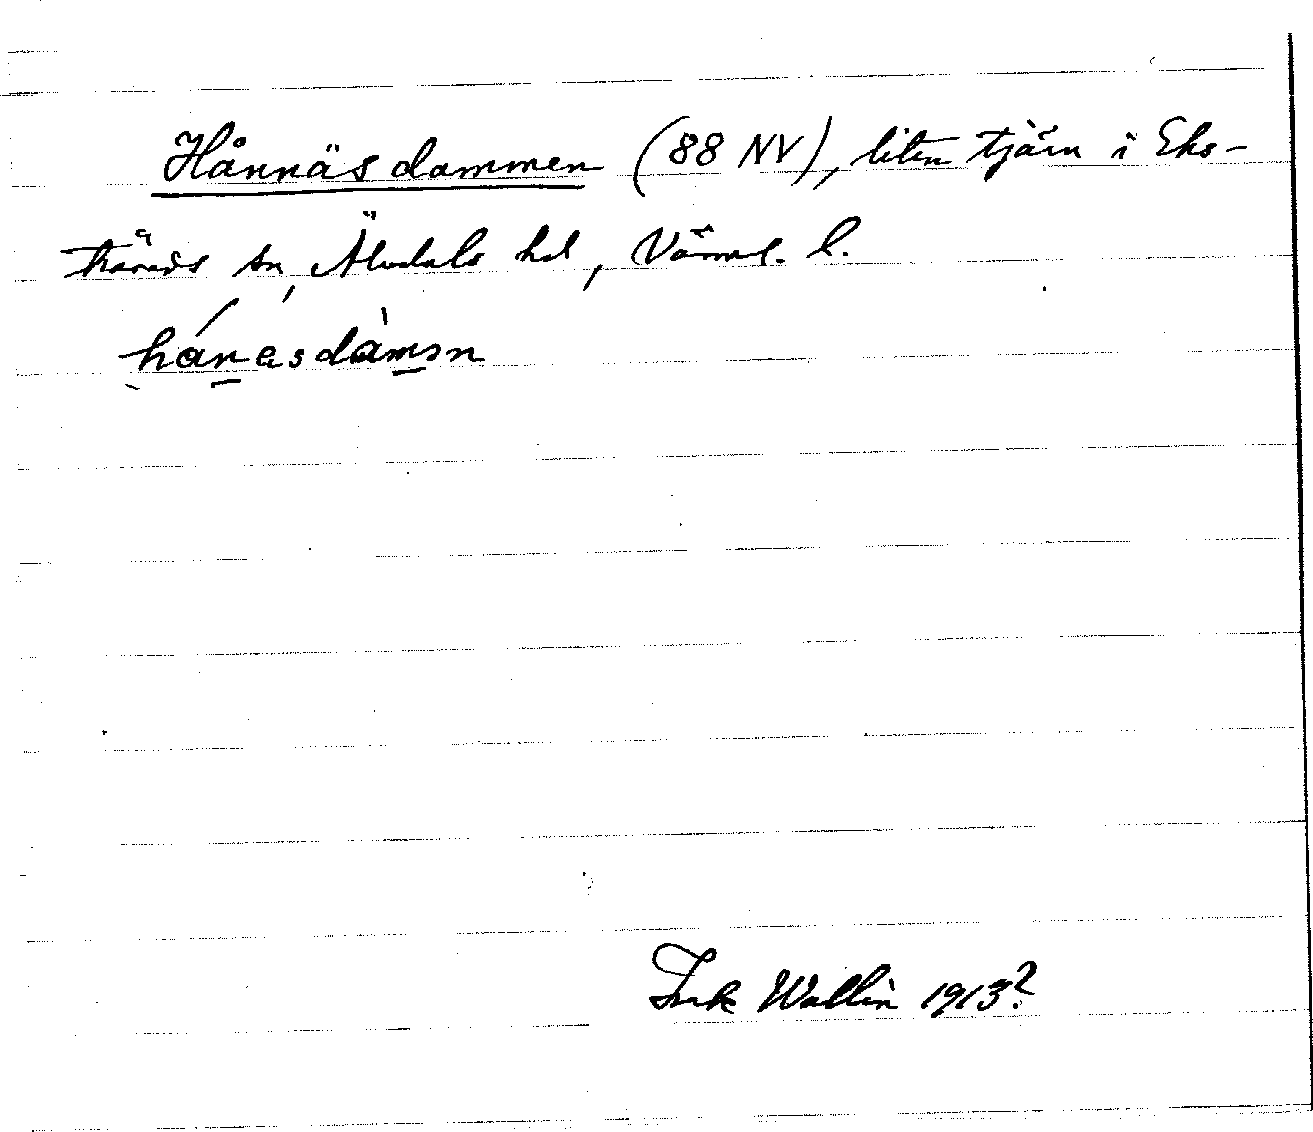 Hånnäsdammen (88 NV), liten tjärn i Eks-
härads sn, Älvdals hd, Värml. l.
hánasdàmən
Wallin 1913?